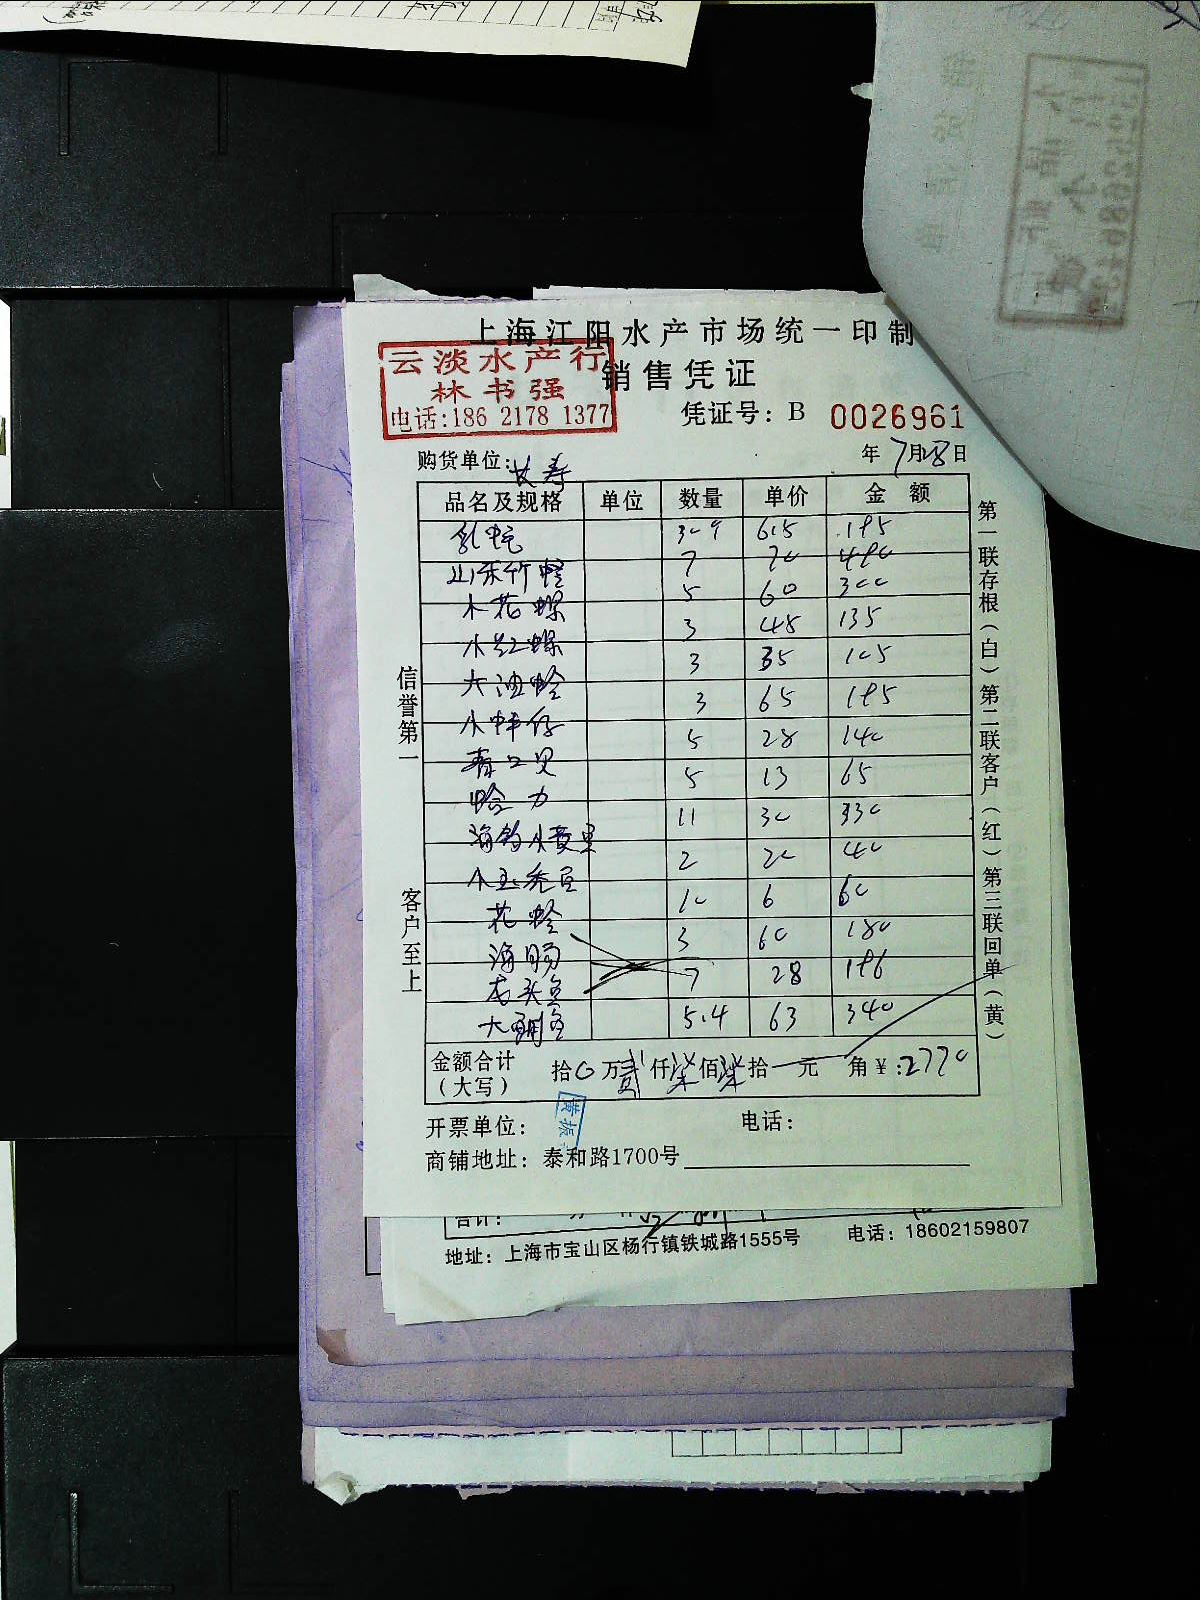 上海江阳水产市场统一印制
云淡水产行
林书强
电话:186 2178 1377
销售凭证
凭证号: B 0026961
购货单位: 长寿 年7月28日
品名及规格 单位 数量 单价 金额
乳蛇 309 6.5 195
山东竹蛏 7 70 490
小花螺 5 60 300
小红螺 3 45 135
大油蛤 3 35 105
小蚌仔 3 65 195
青口贝 5 28 140
蛤力 5 13 65
海钓小黄 11 30 330
小玉秃 2 20 40
花蛤 10 6 60
海肠 3 60 180
龙头鱼 7 28 196
大鲷鱼 5.4 63 340
金额合计
(大写) 拾0万贰仟柒佰柒拾 元 角¥:2770
开票单位: 电话:
商铺地址: 泰和路1700号
信誉第一
客户至上
第一联存根(白)第二联客户(红)第三联回单(黄)
合计:
地址: 上海市宝山区杨行镇铁城路1555号 电话: 18602159807